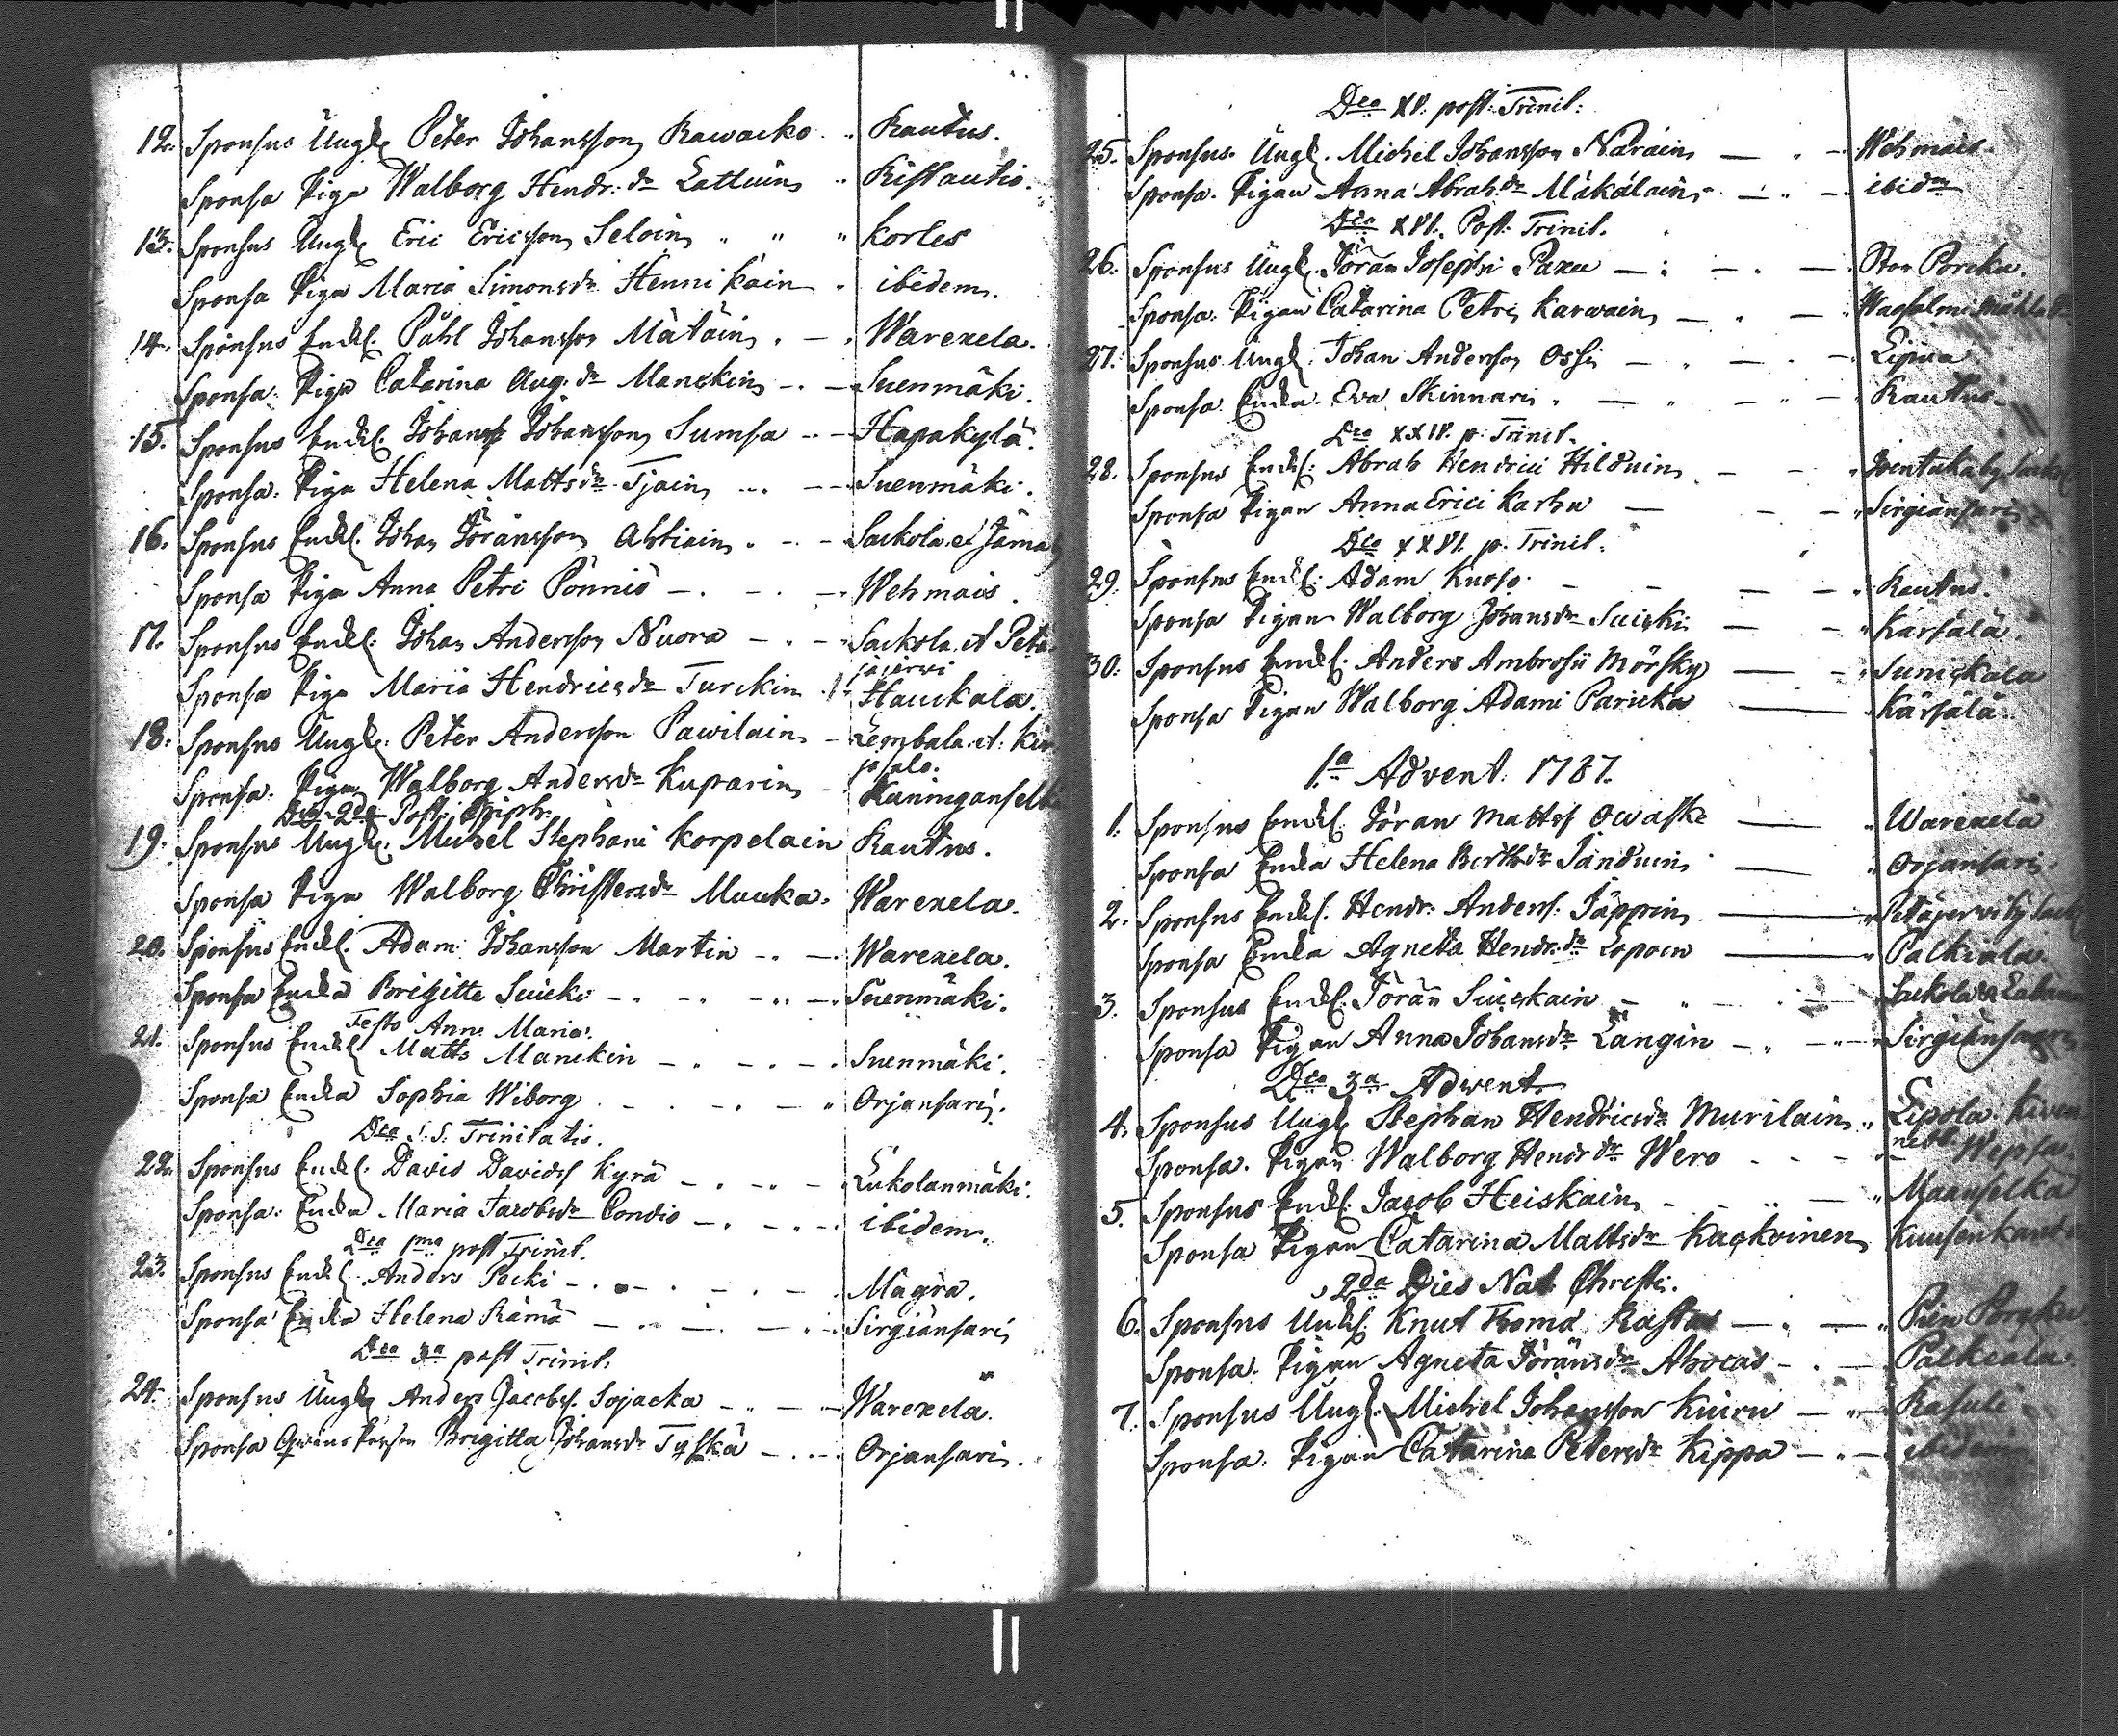 12. Sponsus Ungk Peter Johansson Rawacko .. Rautus.
Sponsa Piga Walborg Hendr: dr Lattuin .. Ristautio.
13: Sponsus Ungk Eric Ericsson Seloin " " " Korles
Sponsa Piga Maria Simonsdr Hennikäin . ibidem.
14. Sponsus Enkl. Påhl Johansson Mätäin . — . Warexela.
Sponsa. Piga Catarina Aug. dr Manckin — . — Suenmäki.
15. Sponsus Enkl. Johan Johansson Sumsa .. — Hapakylä.
Sponsa. Piga Helena Mattsdr Tjäin ... — Suenmäki.
16. Sponsus Enkl. Johan Göransson Ahtiain . — . — Sackola et Jäma
Sponsa Piga Anna Petri Pönniö — . — . — Wehmais.
17. Sponsus Enkl. Johan Andersson Nuora — . — Sackola et Petä
järwi
Sponsa Piga Maria Hendricsdr Turckin . Hauckala.
18: Sponsus Ungk. Peter Andersson Pawilain — Lembala et: Kir
josalo.
Sponsa. Piga Walborg Andersdr Kuparin — Raninganselk
Dca 2da Post: Epiph:
19. Sponsus Ungk. Michel Stephani Korpelain Rautus.
Sponsa Piga Walborg Christersdr Muuka. Warexela.
20. Sponsus Enkl. Adam Johansson Martin — .. — Warexela.
Sponsa Enka Brigitta Suicki — . — .. — Suenmäki.
Festo Ann. Mariæ.
21. Sponsus Enkl. Matts Manckin — . — . — . Suenmäki.
Sponsa Enka Sophia Wiborg . — . — . — " Orjansari.
Dca S.S. Trinitatis.
22. Sponsus Enkl. David Davids. Kyrä — . — . — Lukolanmäki.
Sponsa. Enka Maria Jacobsdr Condio — . — . — ibidem.
Dca 1ma post Trinit.
23. Sponsus Enkl. Anders Pecki — . — . — . — . Magra.
Sponsa Enka Helena Rämä — . — . — . . Sirgiänsari
Dca 3a post Trinit.
24. Sponsus Ungk Anders Jacobss. Sojacka — . — Warexela.
Sponsa Brigitta Johansdr Tyskä — . . — . Orjansari.
Dca XV. post: Trinit:
25. Sponsus. Ungk. Michel Johansson Näräin — . — Wehmais.
Sponsa. Pigan Anna Abrah.dr Mäkäläin — . . — ibidm
Dca XVI. Post. Trinit.
26. Sponsus Ungk. Jöran Josephi Paxu — : — . — Stor Porcku.
Sponsa. Pigan Catarina Petri Karwain — . —
27. Sponsus Ungk. Johan Andersson Ossi — . — . — Lipua
Sponsa Enka. Eva Skinnari . — . — . — Rautus.
Dca XXIV. p. Trinit.
28. Sponsus Enkl. Abrah Hendrici Hilduin — — .
Sponsa Pigan Anna Erici Karhu — — — Sirgiänsari
Dca XXVI. p. Trinit.
29. Sponsus Enkl. Adam Kuosa. — — — — Rautus.
Sponsa Pigan Walborg Johansdr Suicki — — Kärsälä.
30: Sponsus Enkl. Anders Ambrosii Mörsky — — Sunickala
Sponsa Pigan Walborg Adami Paricka — Kärsälä.
1a Advent: 1787.
1. Sponsus Enkl. Jöran Mattss Owaska — Warexela
Sponsa Enka Helena Berthdr Janduin — Orjansari.
2. Sponsus Enkl. Hendr: Anderss. Jäppin — Petäjerwi by Sack
Sponsa Enka Agneta Hendr.dr Lopoin — Palkiala.
3. Sponsus Enkl. Jöran Suickain — " — . — Sackola
Sponsa Pigan Anna Johansdr Längin — . — Sirgiänsari
Dca 3a Adwent
4. Sponsus Ungk Stephan Hendricsdr Murilain .. Lipola. Kiven
nebb Wepsa.
Sponsa. Pigan Walborg Hendrdr Wero . — . —
5. Sponsus Enkl. Jacob Heiskain — . . — " Maanselkä
Sponsa Pigan Catarina Mattsdr Kackoinen Kuusenkand
2da Dies Nat. Christi.
6. Sponsus Unkl. Knut Thoma Rastas — . — " Pien Porcku
Sponsa. Pigan Agneta Jöransdr Ahocas — . — Palkeala
7. Sponsus Ungk. Michel Johansson Kuiru — " — Rasuli
Sponsa. Pigan Catarina Petersdr Kippa — . — ibidem